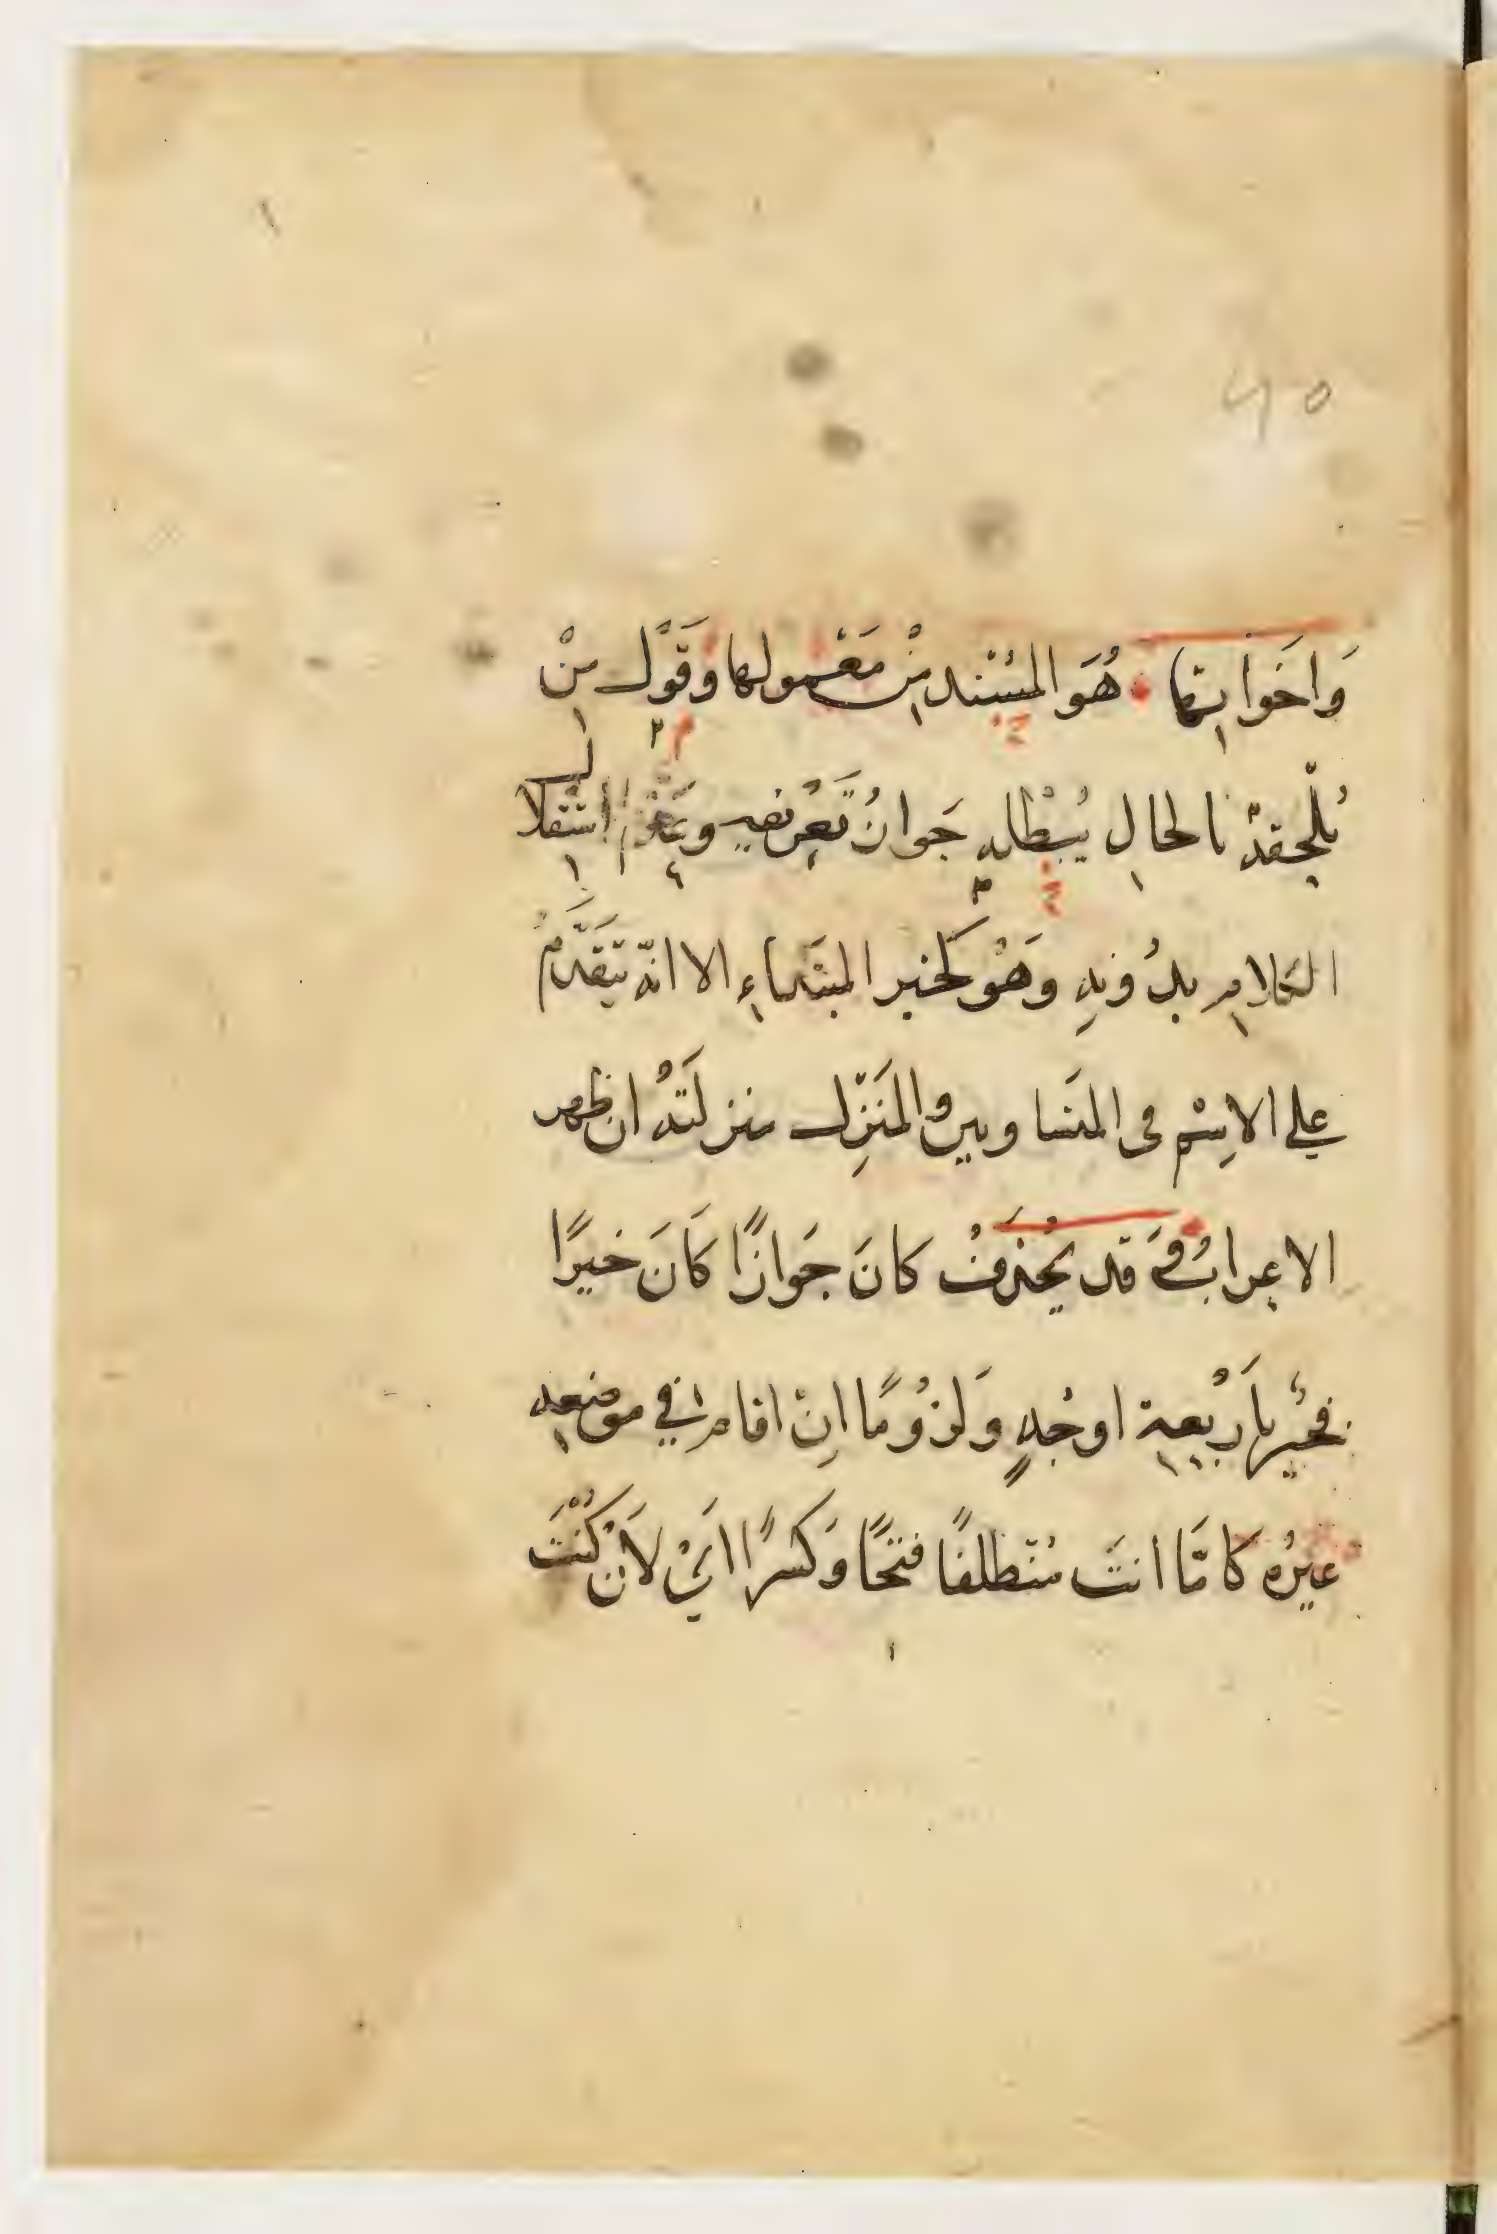 ٤٥
وَاخَوَاتِهَا هُوَ المُسْنَد مِنْ مَعْمولها وَقَوْل مَنْ
يُلْحِقهُ بالحالِ يُبْطله جَوازُ تَعْرِيفِهِ وعَدَمُ اسْتقلال
الكلامِ بدُونِهِ وَهُوَ كَخبر المبْتَداءِ الا انّه يَتقَدَّمُ
على الاِسْمِ فى المتَساويين والمنَزِّل منزلَتَهُ ان ظهر
الاعرابُ وَقد يُحْذَفُ كانَ جَوازًا كَانَ خَيرًا
فخَيْر باَرْبَعة اوجُهٍ وَلزُومًا اِنْ اقام فِي موضعه
غيرُه كامَّا انتَ مُنْطلقًا فتحًا وَكسْرًا اَيْ لاَنْ كُنْتَ